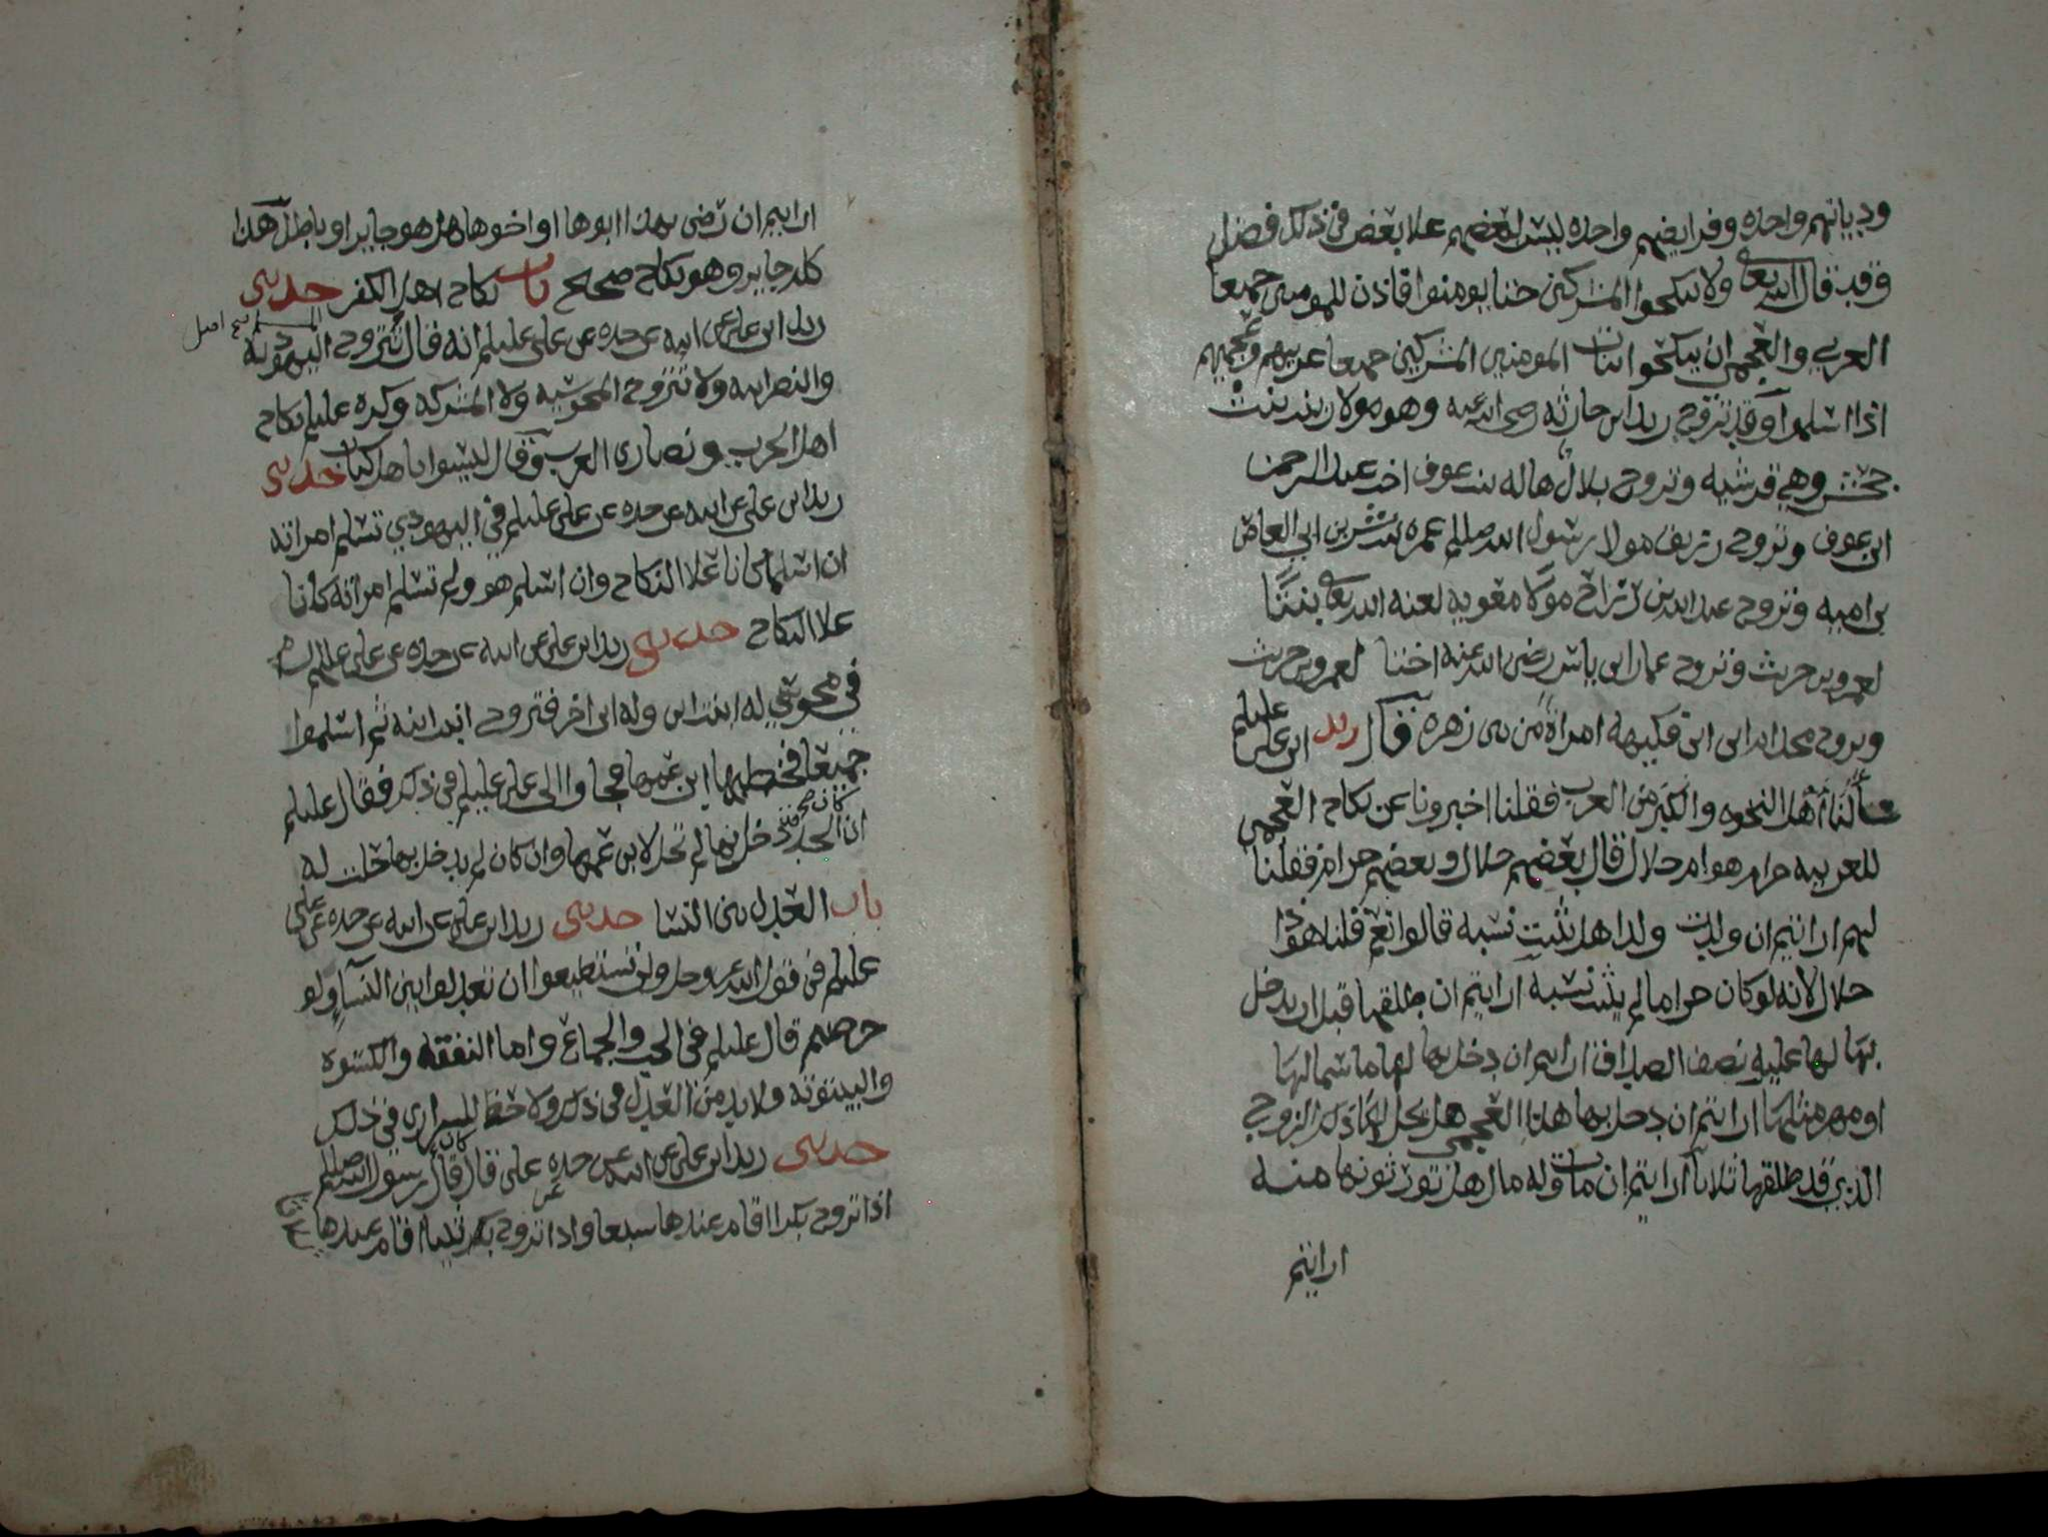 ودياتهم واحده وفرايضهم واحده ليس لبعضهم علا بعض في ذلك فضل
وقد قال الله تعالى ولا تنكحوا المشركين حتا يومنوا فاذن للمومنين جميعا
العربي والعجمي ان ينكحوا بنات المومنين المشركين جميعا عربيهم وعجميهم
اذا اسلموا وقد تزوج زيد ابن حارثه رضي الله عنه وهو مولا زينب بنت
جحش وهي قرشيه وتزوج بلال هاله بنت عوف اخت عبد الرحمن
ابن عوف وتزوج رزيق مولا رسول الله صللم عمره بنت بشر بن ابي العاص
بن اميه وتزوج عبد الله بن رزاح مولا معويه لعنه الله تعالى بنتا
لعمرو بن حريث وتزوج عمار ابن ياسر رضي الله عنه اختا لعمرو بن حريث
وتزوج ابي فكيهه امراة من بني زهره قال زيد ابن علي عليلم
سألنا أهل النخوه والكبر من العرب فقلنا اخبرونا عن نكاح العجمي
للعربيه حرام هو ام حلال قال بعضهم حلال وبعضهم حرام فقلنا
لهم ارايتم ان ولدت ولدا هل تثبت نسبه قالوا نعم قلنا هو اذا
حلال لانه لو كان حراما لم يثبت نسبه ارايتم ان طلقها قبل ان يدخل
بها لها عليه نصف الصداق ارايتم ان دخل بها لها ما سما لها
او مهر مثلها ارايتم ان دخل بها هذا العجمي هل يحل لها ذلك الزوج
الذي قد طلقها ثلاثا ارايتم ان مات وله مال هل تورثونها منه
ارايتم
ارايتم ان رضي بهذا ابوها او اخوها هل هو جايز او باطل هذا
كله جايز وهو نكاح صحيح باب نكاح اهل الكفر حدثني
زيد ابن علي عن ابيه عن جده عن علي عليلم انه قال تتزوج اليهوديه
المسلم صح اصل
والنصرانيه ولا تتزوج المجوسيه ولا المشركه وكره عليلم نكاح
اهل الحرب ونصارى العرب وقال ليسوا باهل كتاب حدثني
زيد ابن علي عن ابيه عن جده عن علي عليلم في اليهودي تسلم امراته
ان اسلما كانا علا النكاح وان اسلم هو ولم تسلم امراته كانا
علا النكاح حدثني زيد ابن علي عن ابيه عن جده عن علي عليلم
في مجوسي له ابنت ابن وله ابن اخر فتزوج ابنت ابنه ثم اسلموا
جميعا فخطبها ابن عمها فجاوا الى علي عليلم في ذلك فقال عليلم
ان الجد كان دخل بها لم تحل لابن عمها وان كان لم يدخل بها حلت له
باب العدل بين النسا حدثني زيد ابن علي عن ابيه عن جده عن علي
عليلم في قول الله عز وجل ولن تستطيعوا ان تعدلوا بين النسآ ولو
حرصتم قال عليلم في الحب والجماع واما النفقه والكسوه
والبيتوته ولا بد من العدل في ذلك ولا حظ للسراري في ذلك
حدثني زيد ابن علي عن ابيه عن جده عن علي قال قال رسول الله صللم
اذا تزوج بكرا اقام عندها سبعا واذا تزوج ثيبا اقام عندها